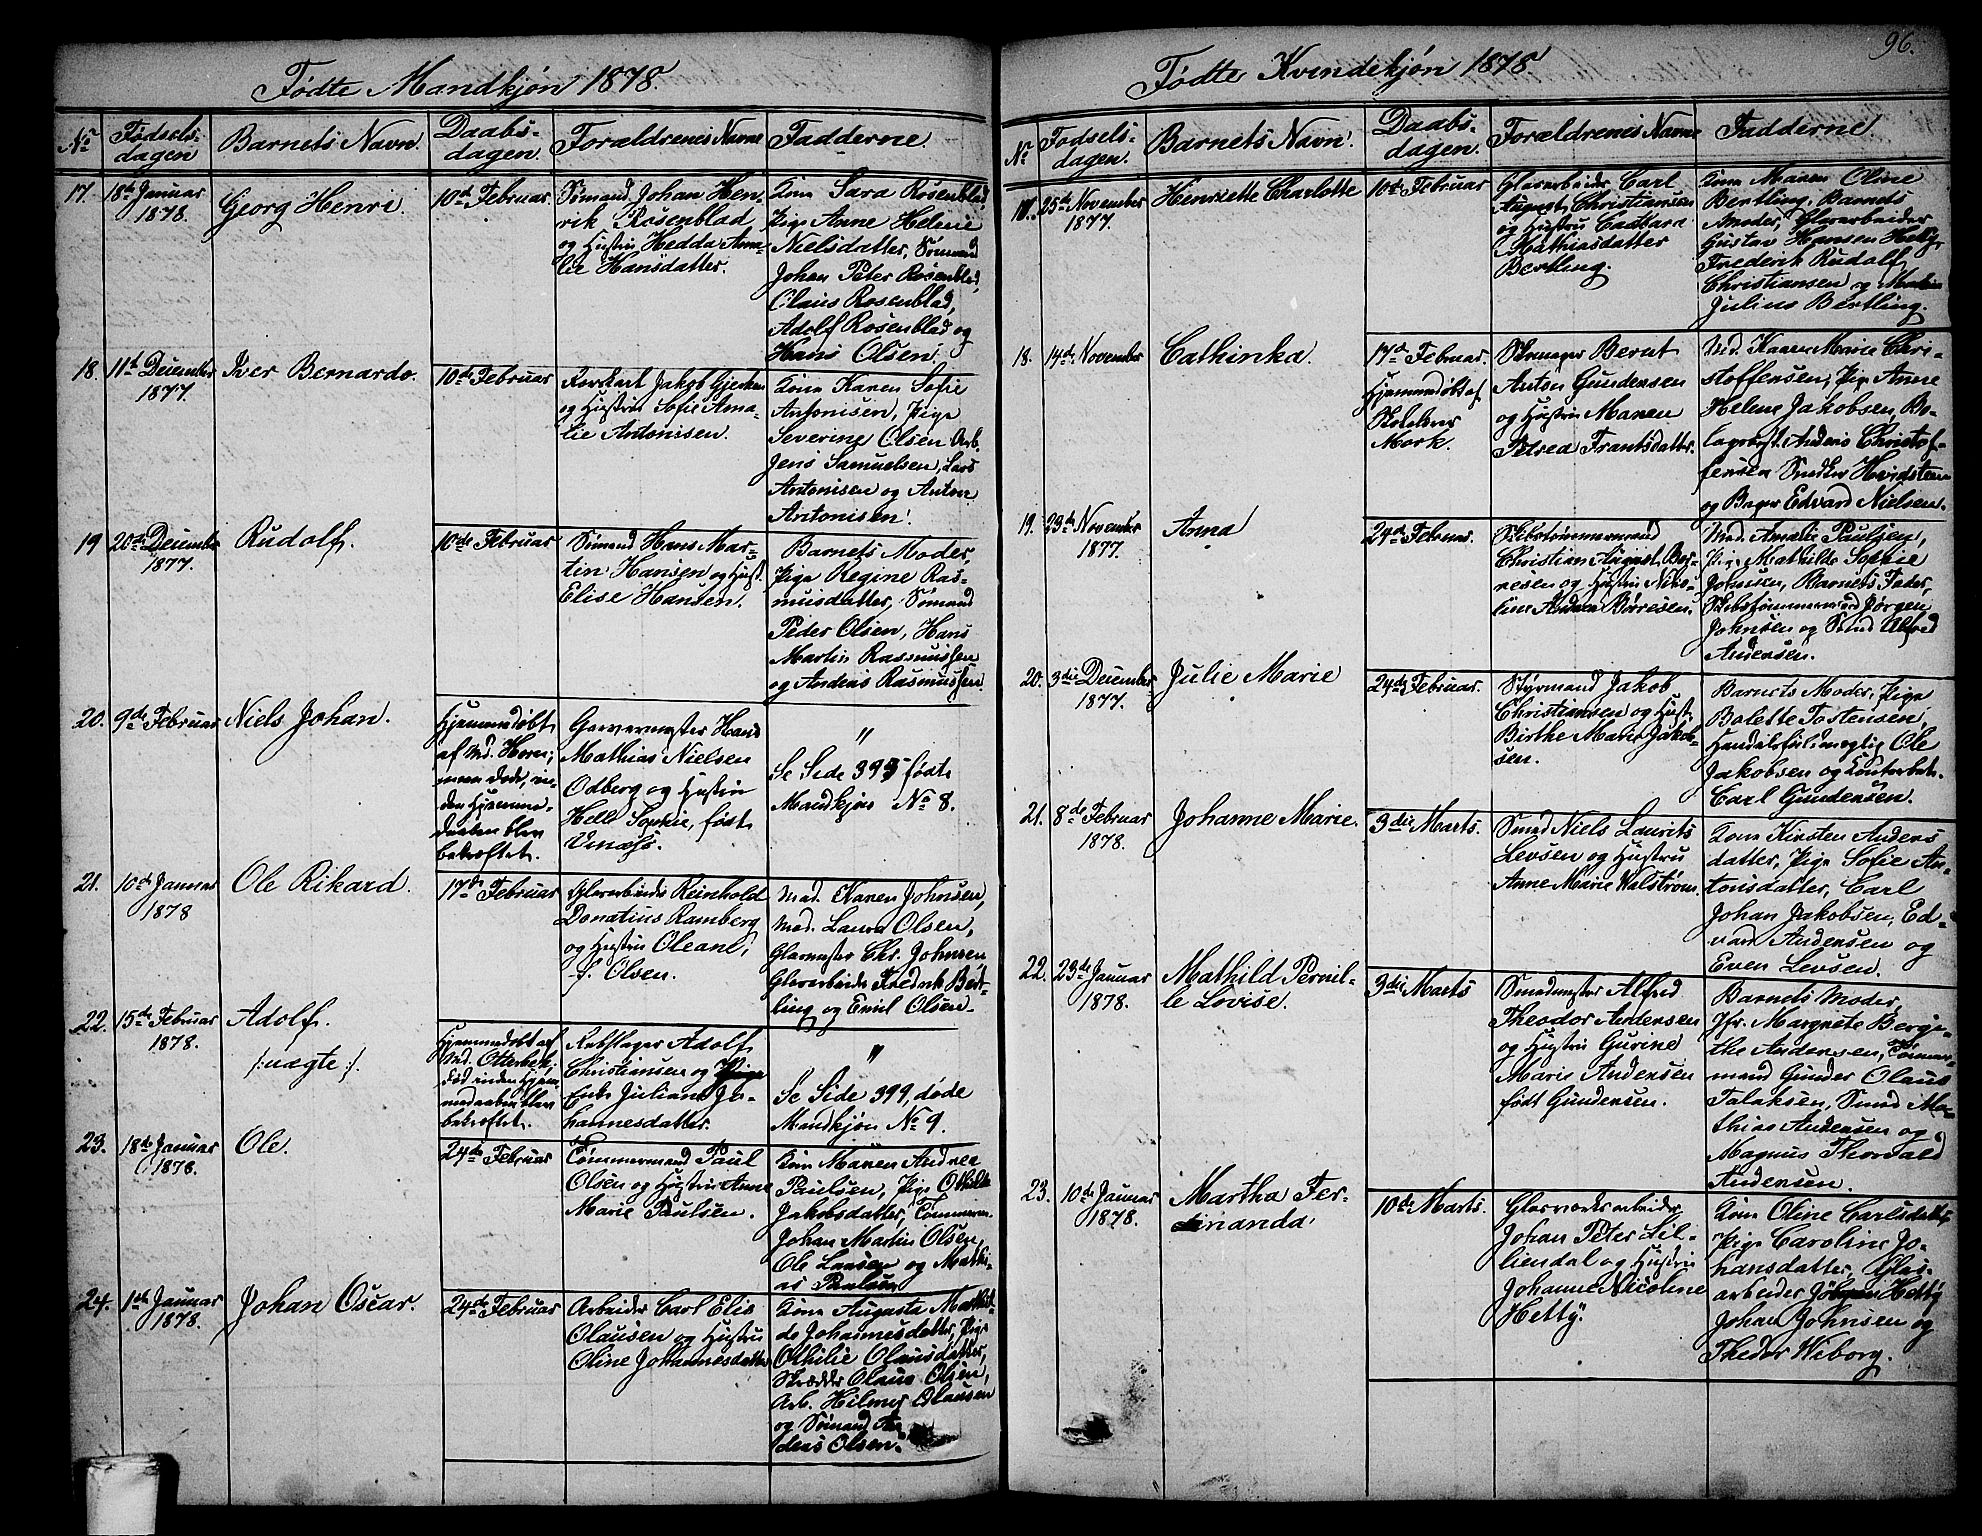 96.
Fødte Mandkjøn 1878.
No
Fødsels-
dagen
Barnets Navn.
Daabs-
dagen.
Forældrenes Navne
Fadderne.
17.
18de Januar
1878.
Georg Henri.
10de Februar
Sømand Johan Hen-
rik Rosenblad
og Hustru Hedda Ama-
lie Hansdatter.
Kone Sara Rosenblad,
Pige Anne Helene
Nielsdatter, Sømand
Johan Peter Rosenblad,
Olaus Rosenblad,
Adolf Rosenblad og
Hans Olsen.
18.
11te December
1877.
Iver Bernardo.
10de Februar
Jakob
og Hustru Sofie Ama-
lie Antonisen.
Kone Karen Sofie
Antonisen, Pige
Severine Olsen Arb.
Jens Samuelsen, Lars
Antonisen og Anton
Antonisen.
19
20de December
1877.
Rudolf.
10de Februar
Sømand Hans Mar-
tin Hansen og Hust.
Elise Hansen.
Barnets Moder,
Pige Regine Ras-
musdatter, Sømand
Peder Olsen, Hans
Martin Rasmussen
og Anders Rasmussen.
20.
9de Februar
Niels Johan.
Hjemmedøbt
af Md. Horn;
men døde, in-
den Hjemme-
daaben blev
bekræftet.
Garvermester Hans
Mathias Nielsen
Odberg og Hustru
Helle Sophie, født
"
Se Side 395 fødte
Mandkjøn No 8.
21.
10de Januar
1878
Ole Rikard.
17de Februar
Glarbeider Reinhold
Donatius Ramberg
og Hustru Oleane,
f. Olsen.
Mad. Karen Johnsen,
Mad. Laura Olsen,
Glasmester Chr. Johnsen,
Glasarbeider Fredrik Bert-
ling og Emil Olsen.
22.
15de Februar
1878.
Adolf.
/: uægte :/.
Hjemmedøbt af
Md. Otterbek;
død inden Hjem-
medaaben blev
bekræftet.
Rebslager Adolf
Christiansen og Pige
Enke Juliane Jo-
hannesdatter.
"
Se Side 399, døde
Mandkjøn No 9.
23.
18de Januar
1878.
Ole.
24de Februar
Tømmermand Paul
Olsen og Hustru Anne
Marie Paulsen.
Kone Maren Andrea
Paulsen, Pige Othilde
Jakobsdatter, Tømmerm.
Johan Martin Olsen,
Ole Larsen og Mathi-
as Paulsen
24.
1ste Januar
1878.
Johan Oscar.
24de Februar
Arbeider Carl Elis
Olausen og Hustru
Oline Johannesdatter
Kone Augusta Mathil-
de Johannesdatter, Pige
Othilie Olausdatter,
Skrædder Olaus Olsen,
Arb. Hilmer Olausen
og Sømand An-
ders Olsen.
Fødte Kvindekjøn 1878
No
Fødsels-
dagen.
Barnets Navn.
Daabs-
dagen.
Forældrenes Navne
Fadderne.
17.
25de November
1877.
Henriette Charlotte
10de Februar
Glasarbeider Carl
August Christiansen
og Hustru Cathara
Mathiasdatter
Bertling.
Kone Maren Oline
Bertling, Barnets
Moder, Glasarbeider
Gustav Hansen Hetty,
Frederik Rudolf
Christiansen og
Julius Bertling.
18.
14de November
Cathinka.
17de Februar.
Hjemmedøbt af
Skolelærer
Mork.
Bernt
Anton Gundersen
og Hustru Maren
Petrea Frantsdatter.
Md. Karen Marie Chri-
stoffersen, Pige Anne
Helene Jakobsen, Bo-
Anders Christof-
fersen Snedker Hvidsteen
og Bager Edvard Nielsen.
19.
23de November
1877.
Anna
24de Februar.
Skibstømmermand
Christian August Bør-
resen og Hustru Niko-
line Andrea Børresen.
Mad. Amalie Paulsen,
Pige Mathilde Sophie
Johnsen, Barnets Fader,
Skibstømmermand Jørgen
Johnsen og Smed Alfred
Andersen.
20.
3die December
1877.
Julie Marie
24de Februar.
Styrmand Jakob
Christiansen og Hust.
Birthe Marie Jakob-
sen.
Barnets Moder, Pige
Bolette Tostensen,
Handelsfuldmægtig Ole
Jakobsen og Kontorbet.
Carl Gundersen.
21.
8de Februar
1878.
Johanne Marie.
3die Marts.
Smed Niels Laurits
Levsen og Hustru
Anne Marie Walstrøm.
Kone Kirsten Anders
datter, Pige Sofie An-
tonsdatter, Carl
Johan Jakobsen, Ed-
vard Andersen og
Even Levsen.
22.
23de Januar
1878.
Mathild Pernil-
le Lovise.
3die Marts
Smedmester Alfred
Theodor Andersen
og Hustru Gurine
Marie Andersen
født Gundersen.
Barnets Moder,
Jfr. Margrete Bergi-
the Andersen, Tømmer-
mand Gunder Olaus
Talaksen, Smed Ma-
thias Andersen og
Magnus Thorvald
Andersen.
23.
10de Januar
1878.
Martha Fer-
dinanda.
10de Marts.
Glasværksarbeider
Johan Peter Lil-
liendal og Hustru
Johanne Nicoline
Hetty.
Kone Oline Carlsdatter
Pige Caroline Jo-
hansdatter, Glas-
arbeider Hetty
Johan Johnsen og
Thedor Wiborg.